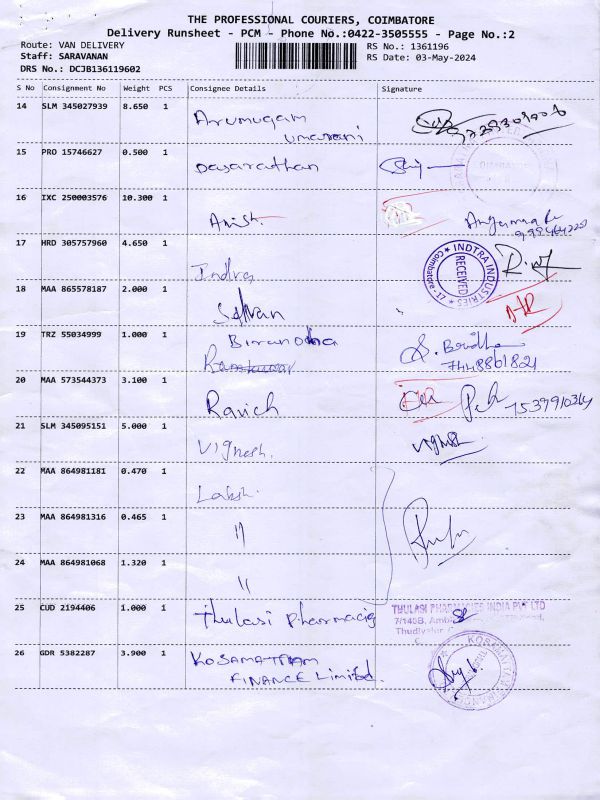 THE PROFESSIONAL COURIERS, COIMBATORE
Delivery Runsheet - PCM - Phone No.:0422-3505555 - Page No.:2
Route: VAN DELIVERY
Staff: SARAVANAN
DRS No.: DCJB136119602
RS No.: 1361196
RS Date: 03-May-2024
S No Consignment No Weight PCS Consignee Details Signature
14 SLM 345027939 8.650 1 Arumugam
umarani
15 PRO 15746627 0.500 1 Dasarathan
16 IXC 250003576 10.300 1 Anish.
17 HRD 305757960 4.650 1 Indra
INDTRA INDUSTRIES
RECEIVED
Coimbatore-17
18 MAA 865578187 2.000 1
19 TRZ 55034999 1.000 1
7448861821
20 MAA 573544373 3.100 1 Ravich
21 SLM 345095151 5.000 1 Vignesh.
22 MAA 864981181 0.470 1 Laksh.
23 MAA 864981316 0.465 1 "
24 MAA 864981068 1.320 1 "
25 CUD 2194406 1.000 1 Thulasi Pharmacig
THULASI PHARMACIES INDIA PVT LTD
7/140B,
Thudiyalur
26 GDR 5382287 3.900 1 KOSAMATTAM
FINANCE Limited.